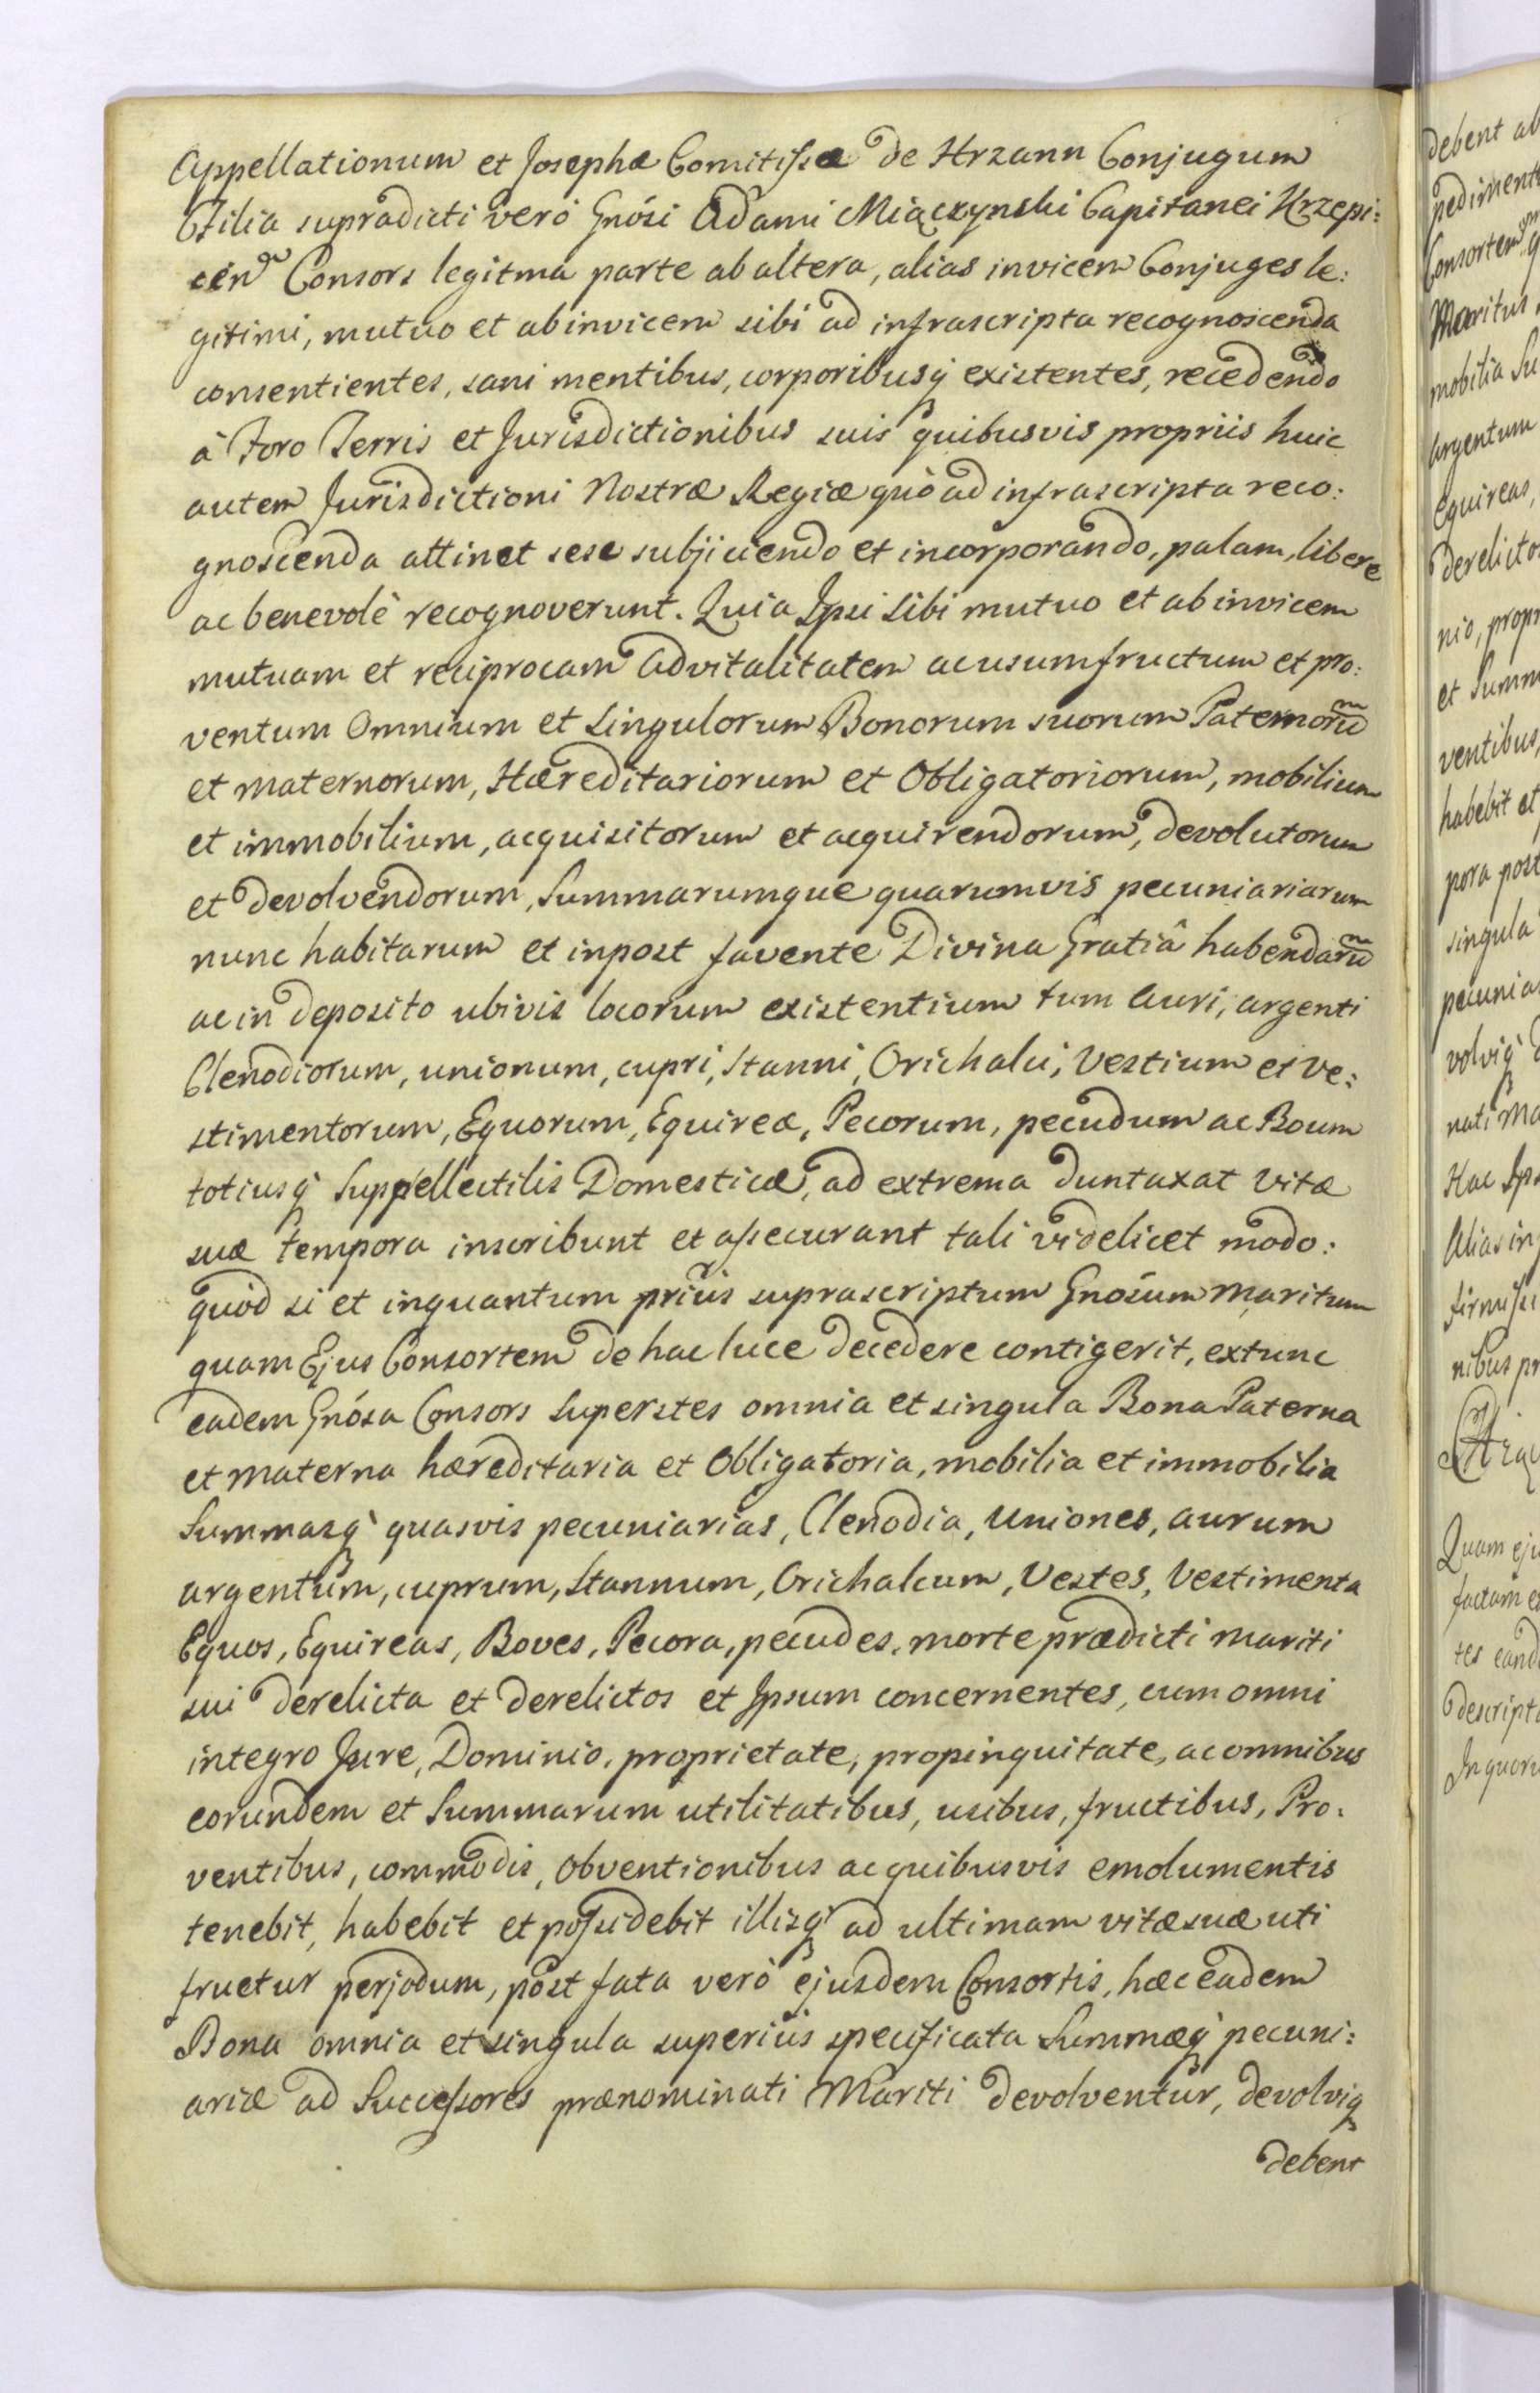 Appellationum et Josephæ Comitissæ de Hrzann Conjugum
Filia supradicti verò Gnósi Adami Miączynski Capitanei Krzepi:
cén Consors legitma parte ab altera, alias invicem Conjuges le:
gitimi, mutuo et ab invicem sibi ad infrascripta recognoscenda
consentientes, sani mentibus, corporibusq́ existentes, recedendo
à Foro Terris et Jurisdictionibus suis quibusvis propriis huic
autem Jurisdictioni Nostræ Regiæ quò ad infrascripta reco:
gnoscenda attinet sese subjiciendo et incorporando, palam, libere
ac benevolè recognoverunt. Quia Ipsi Sibi mutuo et ab invicem
mutuam et reciprocam advitalitatem ac usumfructum et pro:
ventum Omnium et Singulorum Bonorum suorum Paternorũ
et maternorum, Hæreditariorum et Obligatoriorum, mobilium
et immobilium, acquisitorum et acquirendorum, devolutorum
et devolvendorum, Summarumque quarumvis pecuniariarum
nunc habitarum et inpost favente Divina Gratiâ habendarũ
ac in deposito ubivis locorum existentium tum Auri, argenti
Clenodiorum, unionum, cupri, Stanni, Orichalci, Vestium et Ve:
stimentorum, Equorum, Equireæ, Pecorum, pecudum ac Boum
totiusq́ Suppellectilis Domesticæ, ad extrema duntaxat Vitæ
suæ tempora inscribunt et assecurant tali videlicet modo:
quòd si et inquantum priùs suprascriptum Gnósum Maritum
quam Ejus Consortem de hac luce decedere contigerit, extunc
eadem Gnósa Consors Superstes omnia et singula Bona Paterna
et materna hæreditaria et Obligatoria, mobilia et immobilia
Summasq́ quasvis pecuniarias, Clenodia, Uniones, aurum
argentum, cuprum, Stannum, Orichalcum, Vestes, Vestimenta
Equos, Equireas, Boves, Pecora, pecudes, morte prædicti mariti
sui derelicta et derelictos et Ipsum concernentes, cum omni
integro Jure, Dominio, proprietate, propinquitate, ac omnibus
eorundem et Summarum utilitatibus, usibus, fructibus, Pro:
ventibus, commodis, Obventionibus ac quibusvis emolumentis
tenebit, habebit et possidebit illisq́ ad ultimam vitæ suæ uti
fruetur perjodum, post fata verò ejusdem Consortis, hæc eadem
Bona omnia et singula superiùs specificata Summæq́ pecuni:
ariæ ad Successores prænominati Mariti devolventur, devolviq́
debent
debent ab
Consortem
Maritus
mobilia Su
argentum
equireas,
derelicto
nio, propr
et Summ
ventibus,
habebit et
pora post
singula
pecunia
volviq́
nati Ma
Hac Ips
Alias in
nibus pr
Quam eju
factam e
tes eand
descript
In quoru